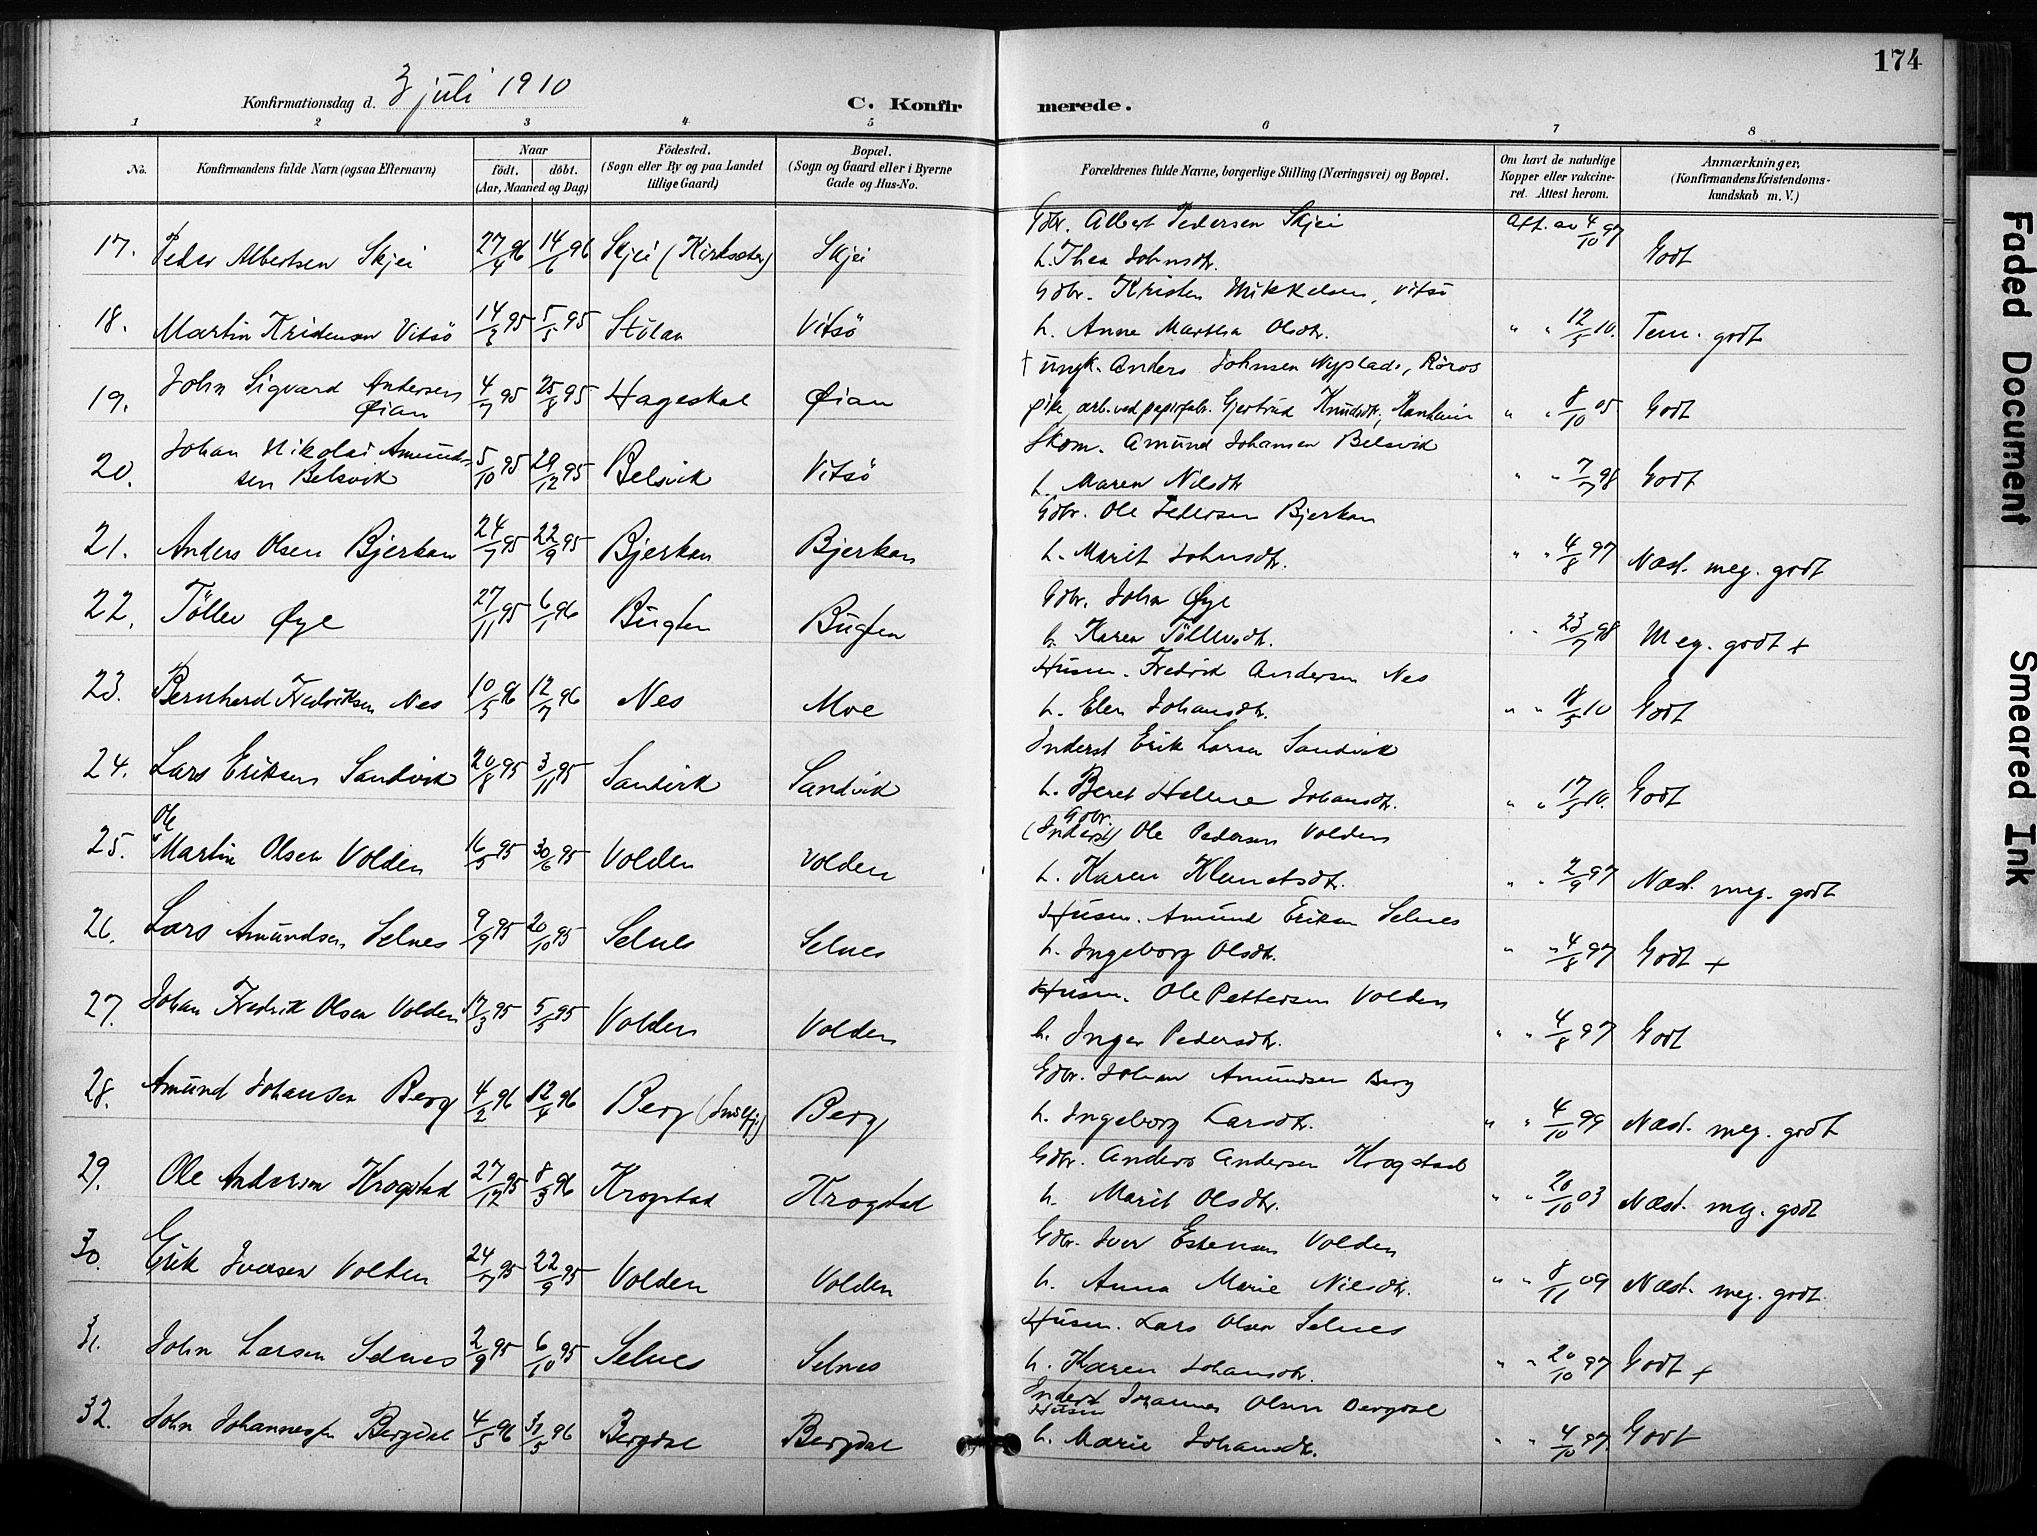 174
Konfirmationsdag d. 3 juli 1910
C. Konfirmerede.
1 2 3 4 5 6 7 8
No.
Konfirmandens fulde Navn (ogsaa Efternavn)
Naar
födt. döbt.
(Aar, Maaned og Dag)
Födested.
(Sogn eller By og paa Landet
tillige Gaard)
Bopæl.
(Sogn og Gaard eller i Byerne
Gade og Hus-No.
Forældrenes fulde Navne, borgerlige Stilling (Næringsvei) og Bopæl.
Om havt de naturlige
Kopper eller vakcine-
ret. Attest herom.
Anmærkninger,
(Konfirmandens Kristendoms-
kundskab m. V.)
Gbr. Albert Pedersen Skjei
17. Peder Albertsen Skjei 27/4 96 14/6 96 Skjei (Kirksæter) Skjei h. Thea Johnsdtr. Att. av 4/10 97 Godt
Gbr. Kristen Mikkelsen, Vitsö
18. Martin Kristensen Vitsö 14/3 95 5/5 95 Stölan Vitsö h. Anne Martha Olsdtr. " " 12/5 10. Tem. godt
† ungk. Anders Johnsen Nyplads, Röros
19. John Sigvard Andersen Øian 4/7 95 25/8 95 Hageskal Øian pike, arb. ved papirfabr. Gjertrud Knudsdtr., Ranheim " " 8/10 05 Godt
Skom. Amund Johansen Belsvik
20. Johan Nikolai Amundsen Belsvik 5/10 95 29/12 95 Belsvik Vitsö h. Maren Nilsdtr " " 7/7 98 Godt
Gbr. Ole Pedersen Bjerkan
21. Anders Olsen Bjerkan 24/7 95 22/9 95 Bjerkan Bjerkan h. Marit Johnsdtr. " " 4/8 97 Næst. meg. godt
Gbr. John Øye
22. Töllev Øye 27/11 95 6/1 96 Bugten Bugten h. Karen Töllevsdtr. " " 23/7 98 Meg. godt +
Husm. Fredrik Andersen Nes
23. Bernhard Fredriksen Nes 10/5 96 12/7 96 Nes Moe h. Elen Johansdtr. " " 8/5 10 Godt
Inderst Erik Larsen Sandvik
24. Lars Eriksen Sandvik 20/8 95 3/11 95 Sandvik Sandvik h. Beret Hellene Johansdtr. " " 17/5 10. Godt
(Inderst) Gbr. Ole Pedersen Volden
25. Ole Martin Olsen Volden 16/5 95 30/6 95 Volden Volden h. Karen Klemetsdtr. " " 2/9 97 Næst. meg. godt
Husm. Amund Eriksen Selnes
26. Lars Amundsen Selnes 9/9 95 20/10 95 Selnes Selnes h. Ingeborg Olsdtr. " " 4/8 97 Godt +
Husm. Ole Pettersen Volden
27. Johan Fredrik Olsen Volden 17/3 95 5/5 95 Volden Volden h. Inger Pedersdtr. " " 4/8 97 Godt
Gbr. Johan Amundsen Berg
28. Amund Johansen Berg 4/2 96 12/4 96 Berg Berg h. Ingeborg Larsdtr. " " 4/10 99 Næst. meg. godt
Gbr. Anders Andersen Krogstad
29. Ole Andersen Krogstad 27/12 95 8/3 96 Krogstad Krogstad h. Marit Olsdtr. " " 20/10 03 Næst. meg. godt
Gbr. Iver Estensen Volden
30. Erik Iversen Volden 24/7 95 22/9 95 Volden Volden h. Anna Marie Nilsdtr. " " 8/11 09 Næst. meg. godt.
Husm. Lars Olsen Selnes
31. John Larsen Selnes 2/9 95 6/10 95 Selnes Selnes h. Karen Johansdtr. " " 20/10 97 Godt +
Inderst Husm Johannes Olsen Bergdal
32. John Johannessen Bergdal 4/5 96 31/5 96 Bergdal Bergdal h. Marie Johansdtr. " " 4/10 97 Godt
Faded Document
Smeared Ink